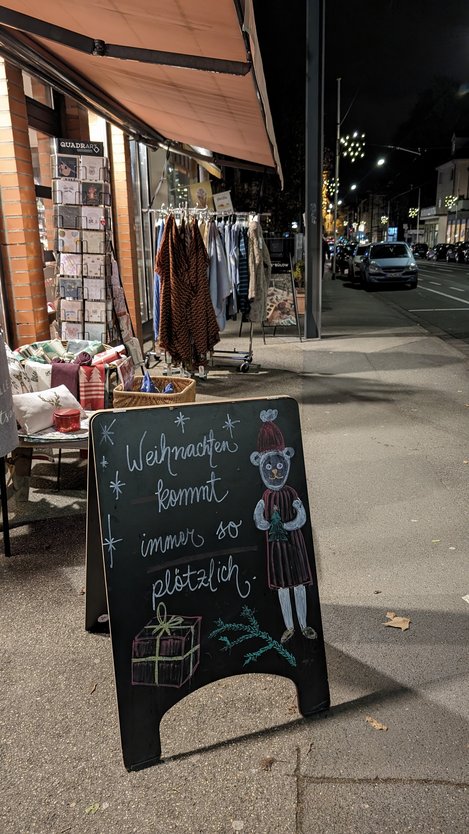 QUADRART
Weihnachten
kommt
immer so
plötzlich.